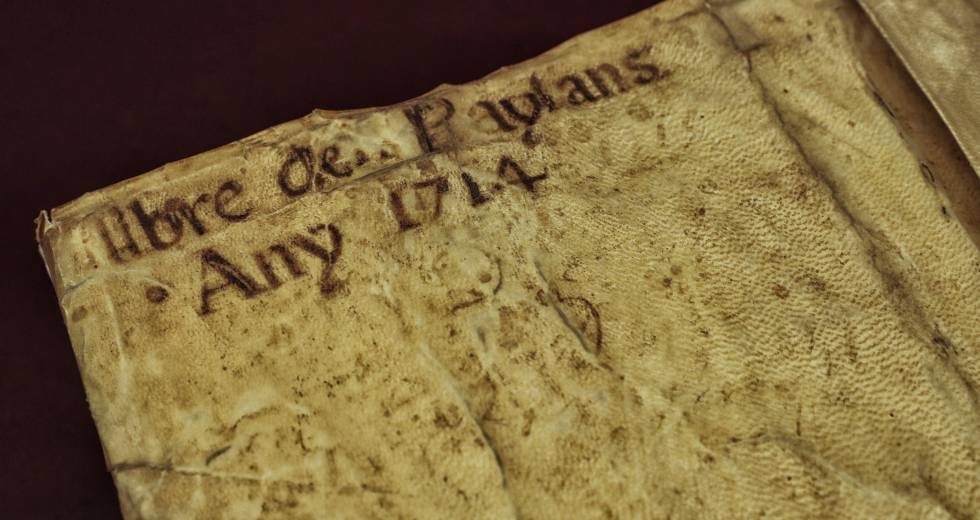 llibre de.. Paÿlans
· Any 1714